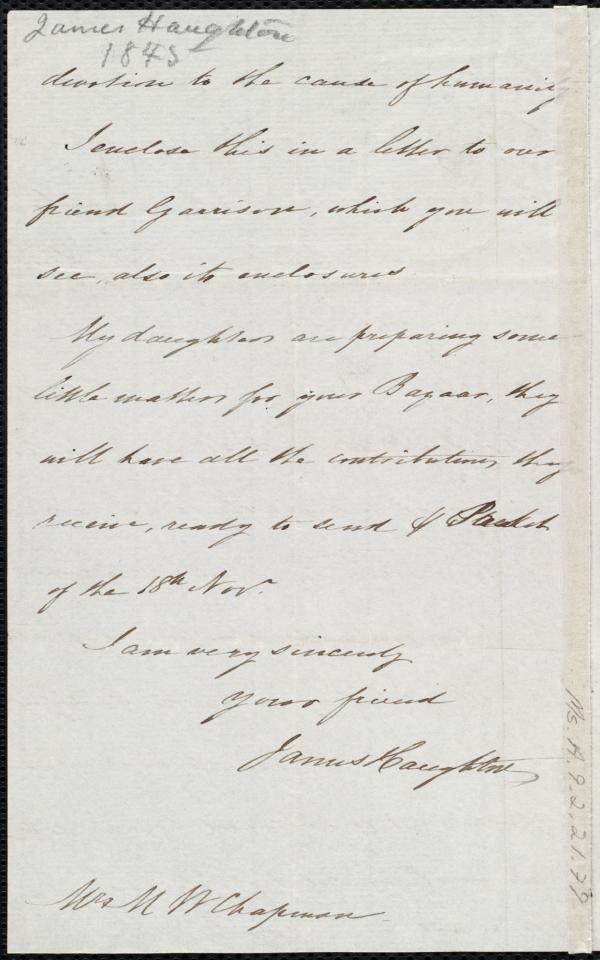 James Haughton
1845
devotion to the cause of humanity
I enclose this in a letter to our
friend Garrison, which you will
see, also its enclosures
My daughters are preparing some
little matters for your Bazaar, they
will have all the contributions they
receive, ready to send ⅌ Packet
of the 18th Novr.
I am very sincerely
your friend
James Haughton
Mrs M W Chapman
Ms. A. 9. 2. 21. 79